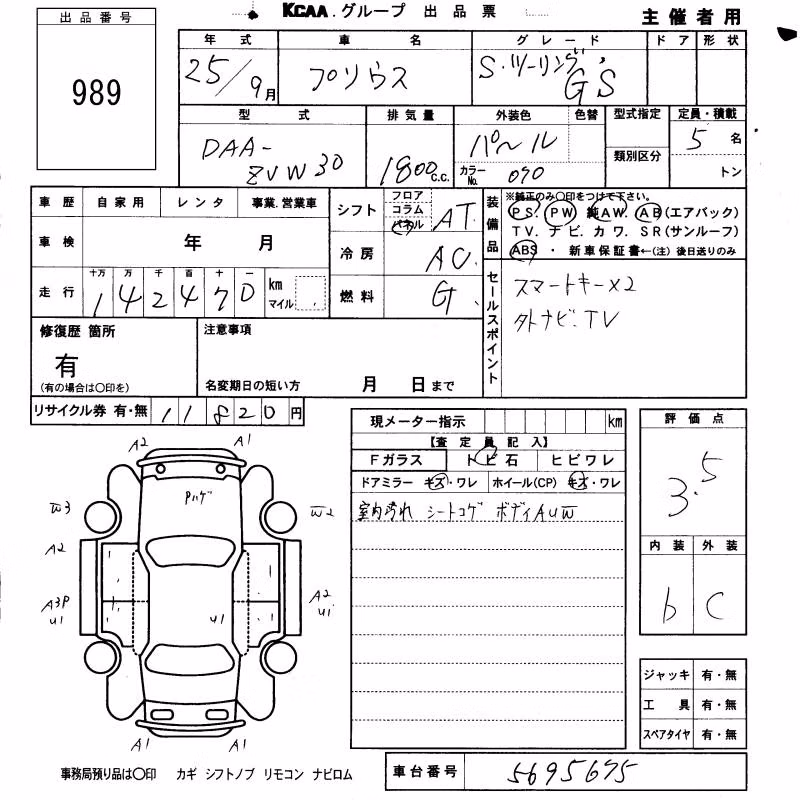 KCAA.グループ 出品票
主催者用
出品番号
989
年式 車名 グレード ドア 形状
25/9月 プリウス S・ツーリング G'S
型式 排気量 外装色 色替 型式指定 定員・積載
DAA-ZVW30 1800c.c. パール カラーNo. 070 類別区分 5名 トン
車歴 自家用 レンタ 事業.営業車
車検 年 月
走行 十万 万 千 百 十 一 km マイル
142470
シフト フロア コラム パネル AT
冷房 AC
燃料 G
装備品
※純正のみ○印をつけて下さい。
PS. PW 純AW. AB(エアバック)
TV. ナビ. カワ. SR(サンルーフ)
ABS ・ 新車保証書←(注) 後日送りのみ
セールスポイント
スマートキー×2
外ナビ.TV
修復歴 箇所
有
(有の場合は○印を)
注意事項
名変期日の短い方 月 日まで
リサイクル券 有・無 11820円
現メーター指示 km
【査定員記入】
Fガラス トビ石 ヒビワレ
ドアミラー キズ・ワレ ホイール(CP) キズ・ワレ
室内汚れ シートコゲ ボディAUW
評価点
3.5
内装 外装
b C
ジャッキ 有・無
工具 有・無
スペアタイヤ 有・無
A2 A1
Pハゲ
W3 W2
A2
A3P U1 U1 A2 U1
A1 A1
事務局預り品は○印 カギ シフトノブ リモコン ナビロム
車台番号 5695675